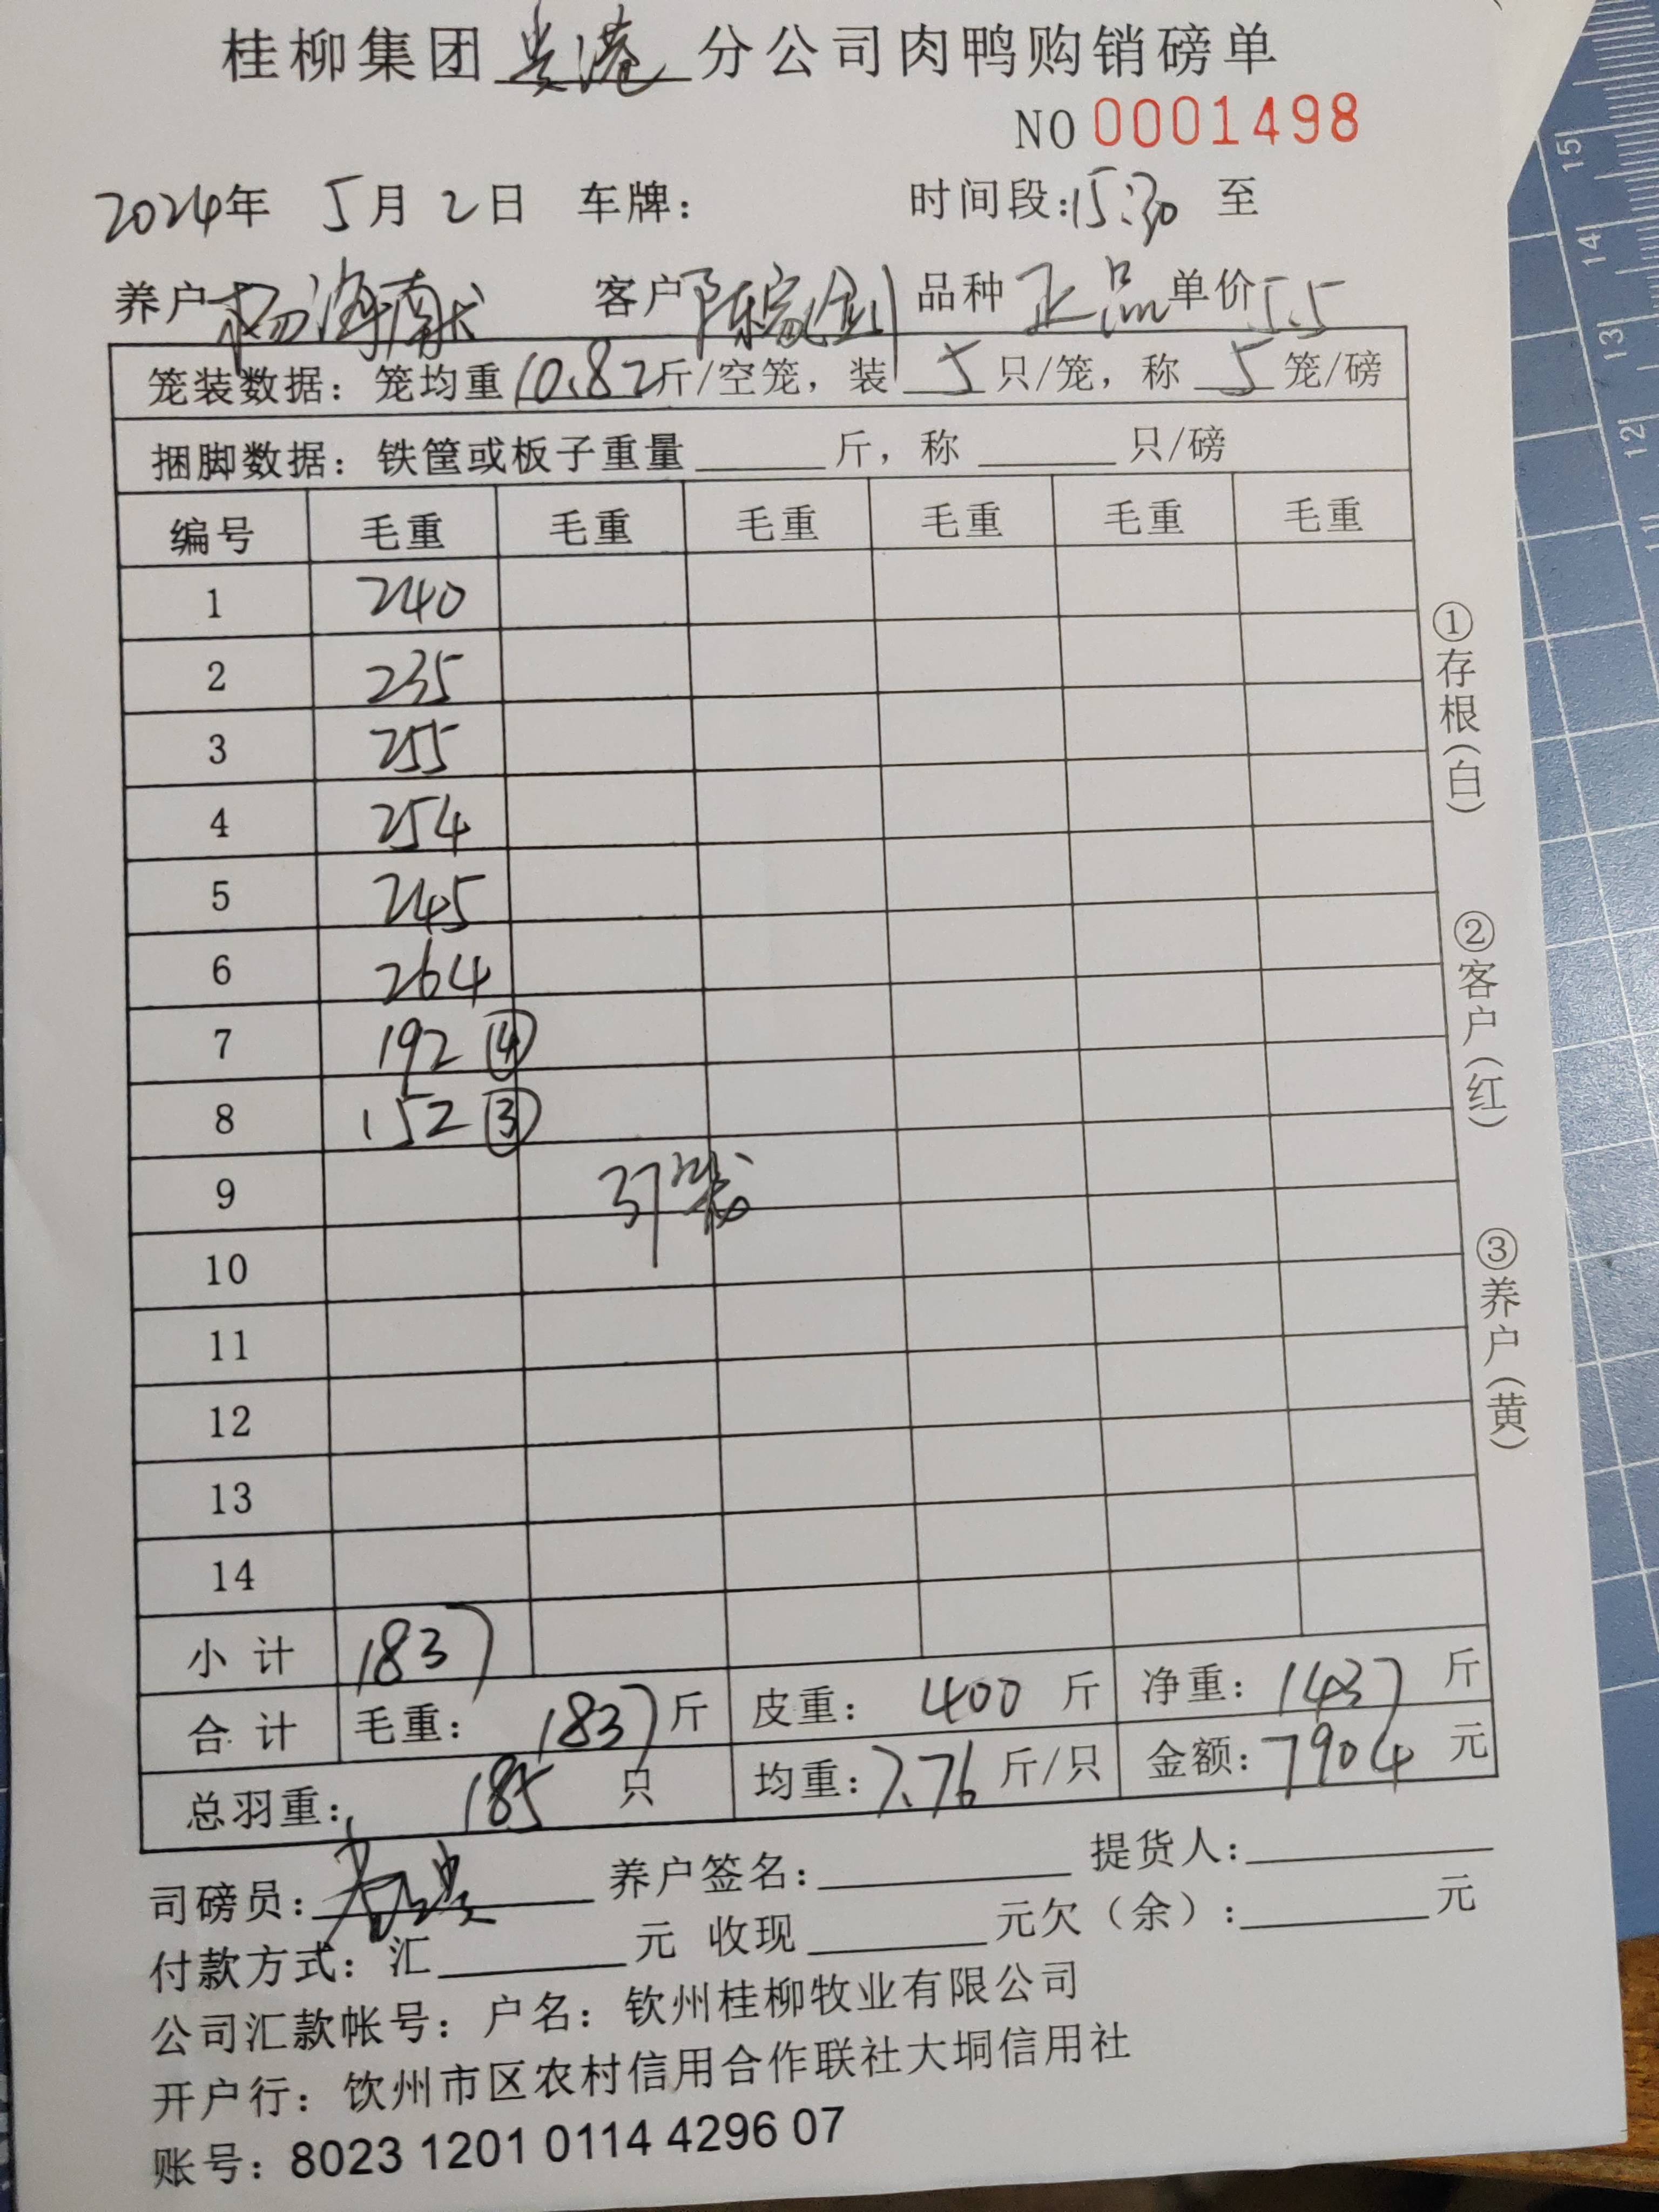 桂柳集团贵港分公司肉鸭购销磅单
NO 0001498
2024年 5月2日 车牌： 时间段：15:30 至
养户 杨海南 客户 陈 剑 品种 正品 单价 5.5
笼装数据：笼均重10.82斤/空笼，装 5 只/笼，称 5 笼/磅
捆脚数据：铁筐或板子重量 斤，称 只/磅
编号 毛重 毛重 毛重 毛重 毛重 毛重
1 240
2 235
3 255
4 254
5 245
6 264
7 192 ④
8 152 ③
9 37
10
11
12
13
14
小 计 1837
合 计 毛重：1837斤 皮重：400斤 净重：1437斤
总羽重：185 只 均重：7.76斤/只 金额：7904元
司磅员： 养户签名： 提货人：
付款方式：汇 元 收现 元欠（余）： 元
公司汇款帐号：户名：钦州桂柳牧业有限公司
开户行：钦州市区农村信用合作联社大垌信用社
账号：8023 1201 0114 4296 07
①存根（白）
②客户（红）
③养户（黄）
15
14
13
12
11